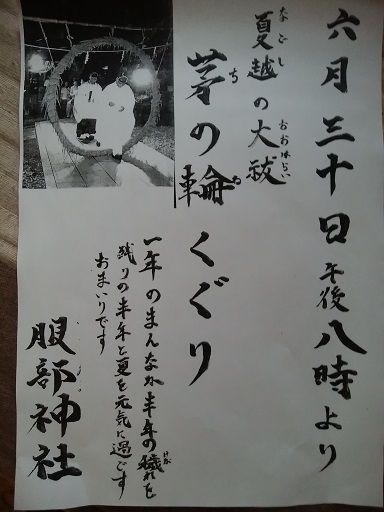 六月三十日午後八時より
夏越の大祓
なごし おおはらい
茅の輪くぐり
ち わ
一年のまんなか半年の穢れを
けが
残りの半年と夏を元気に過ごす
おまいりです
服部神社